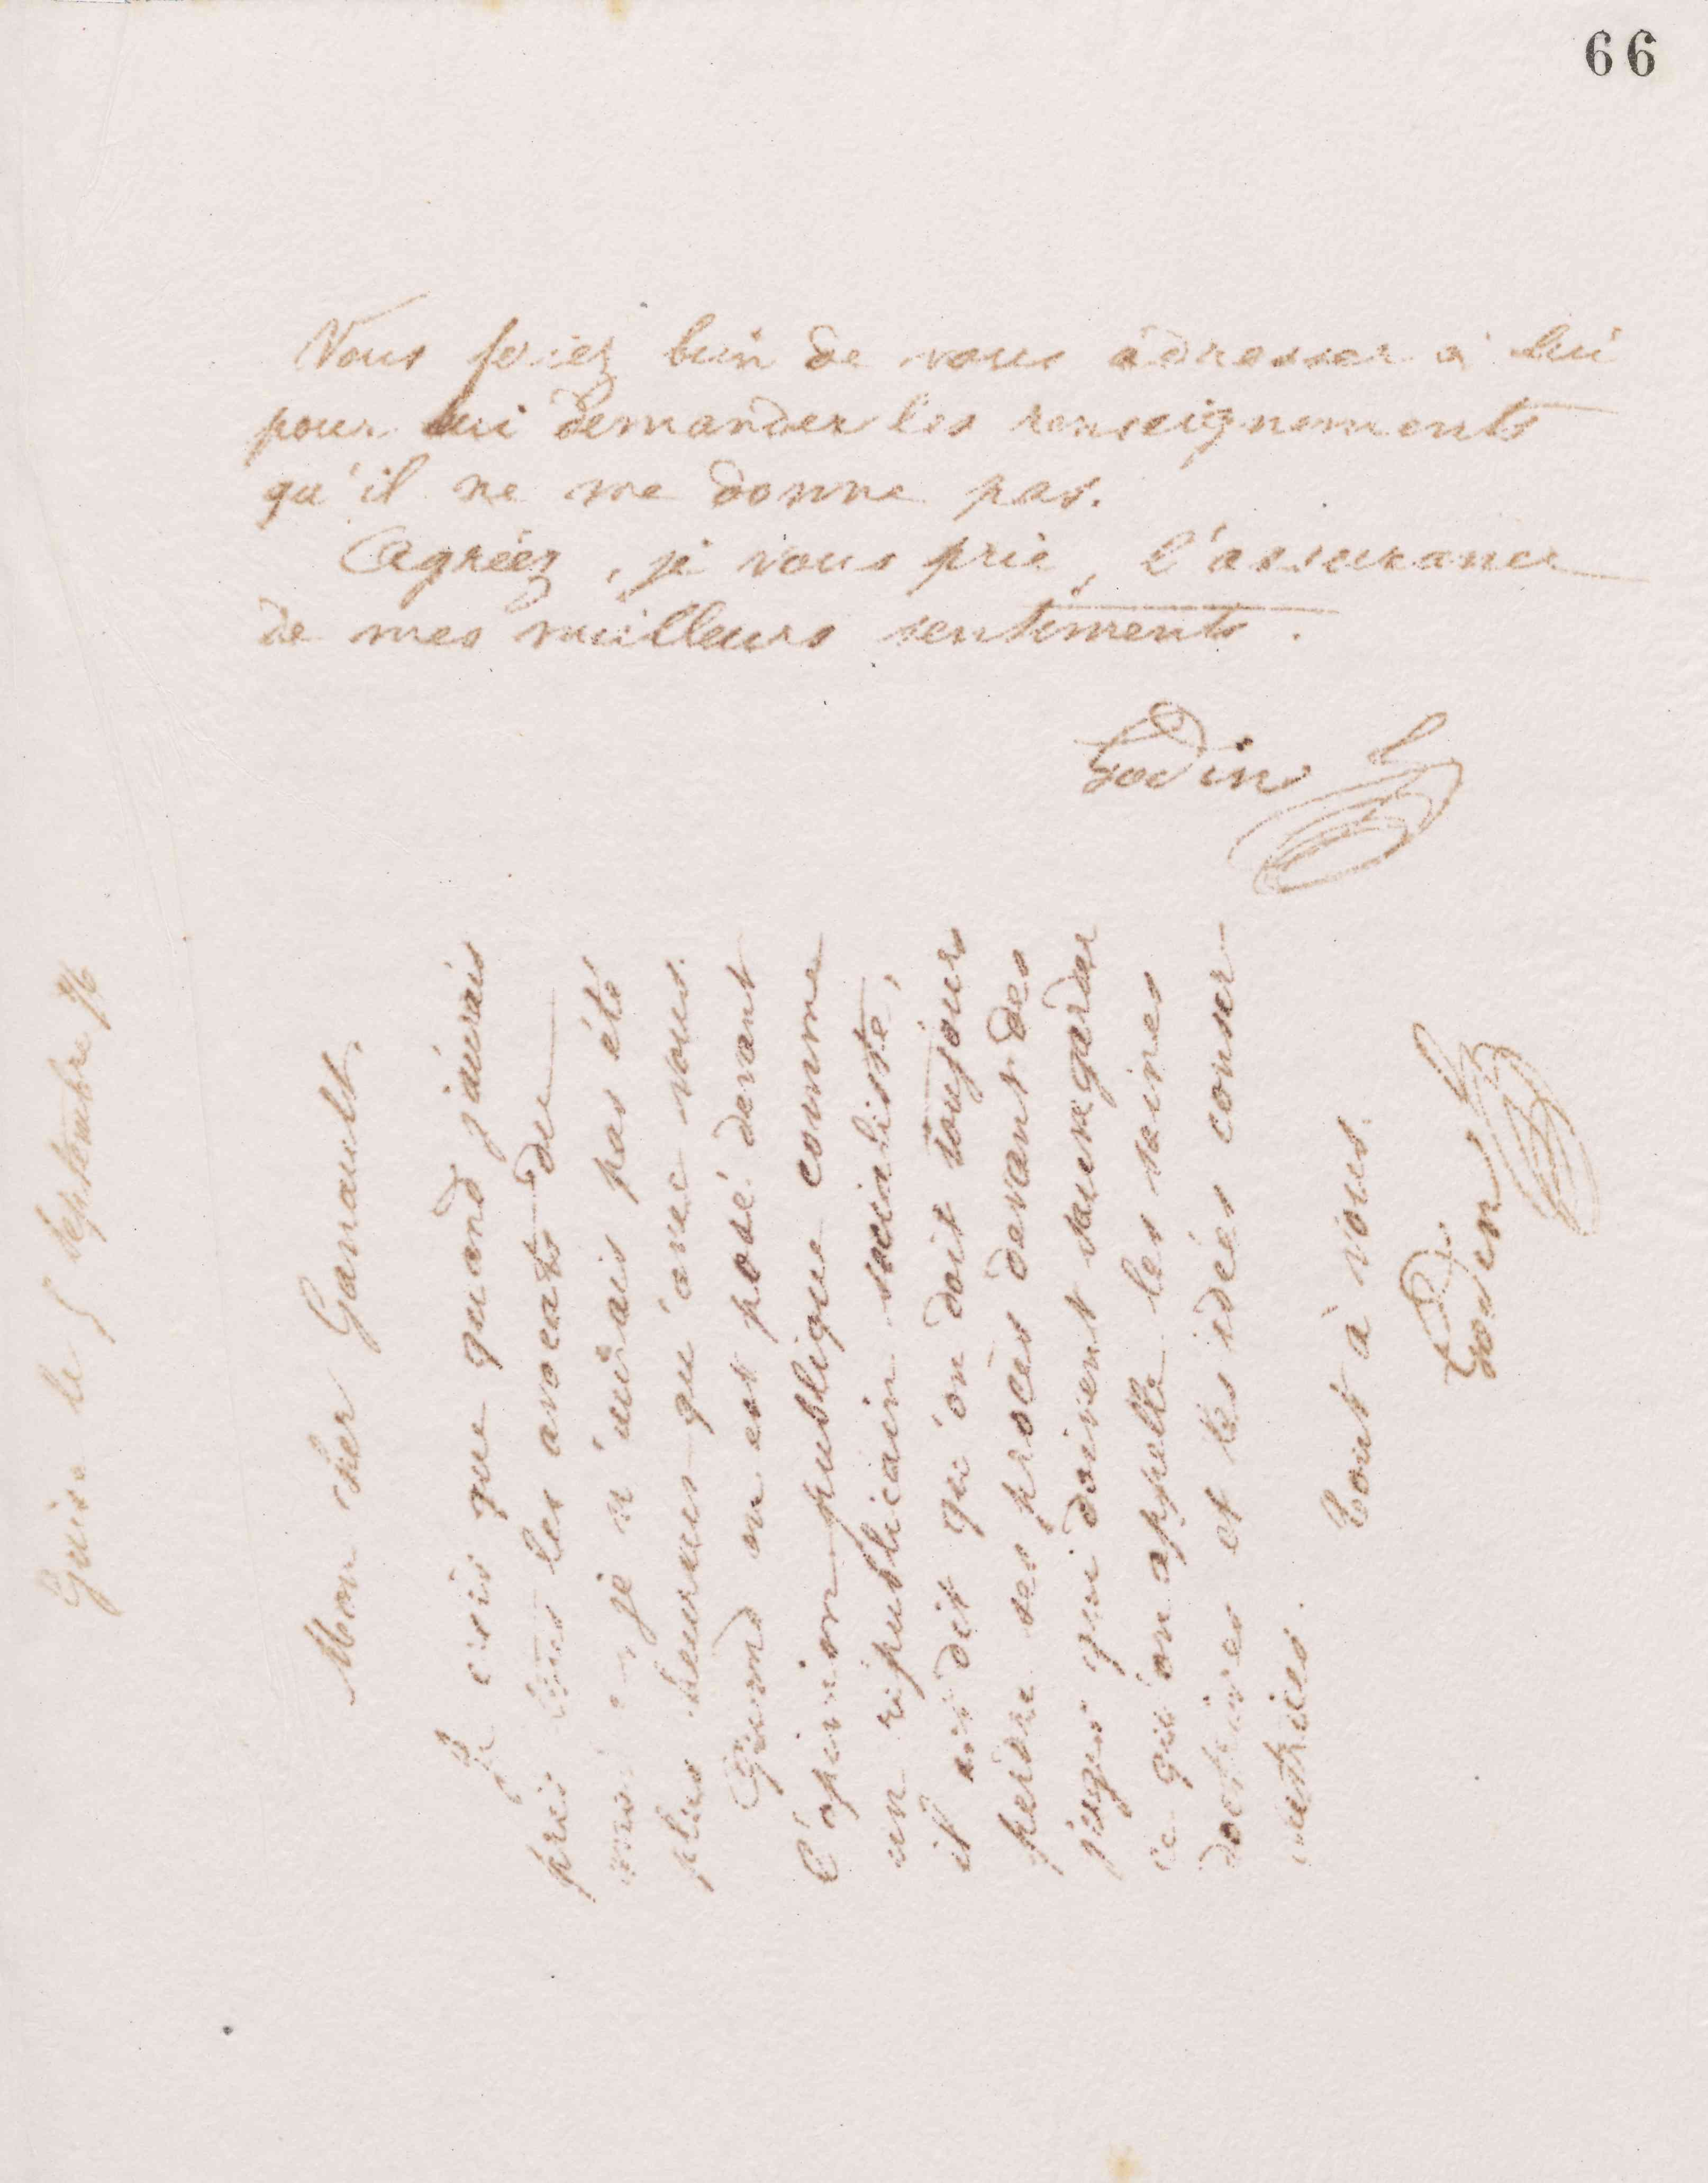 66
Vous feriez bien de vous adresser à lui
pour lui demander les renseignements
qu'il ne me donne pas.
Agréez, je vous prie, l'assurance
de mes meilleurs sentiments.
Godin
Guise le 5 septembre 76
Mon cher Garnault,
Je crois que quand j'aurais
pris tous les avocats du
je n'aurais pas été
plus heureux qu'avec vous.
Quand on est posé devant
l'opinion publique comme
un républicain socialiste,
il est dit qu'on doit toujours
perdre ses procès devant des
juges qui doivent sauvegarder
ce qu'on appelle les saines
doctrines et les idées conser-
vatrices.
Tout à vous.
Godin